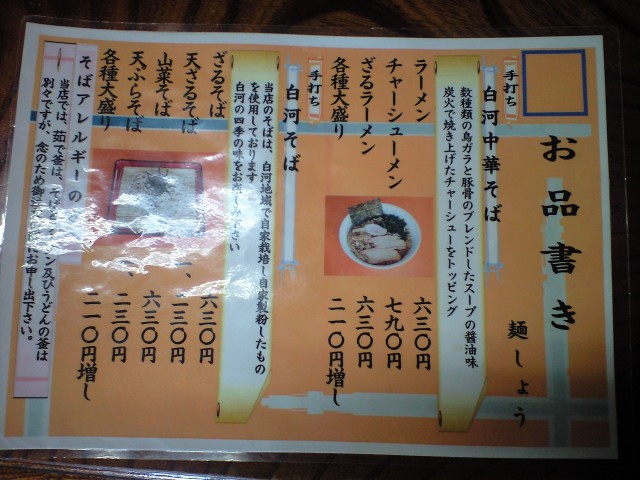 お品書き
麺しょう
手打ち
白河中華そば
数種類の鳥ガラと豚骨のブレンドしたスープの醤油味
炭火で焼き上げたチャーシューをトッピング
ラーメン 六三〇円
チャーシューメン 七九〇円
ざるラーメン 六三〇円
各種大盛り 二一〇円増し
手打ち
白河そば
当店のそばは、白河地域で自家栽培し自家製粉したもの
を使用しております
白河の四季の味をお楽しみ下さい
ざるそば 六三〇円
天ざるそば 三〇円
山菜そば 六三〇円
天ぷらそば 二三〇円
各種大盛り 二一〇円増し
そばアレルギーの
当店では、茹で釜は、そば 及びうどんの釜は
別々ですが、念のため御注 にお申し出下さい。